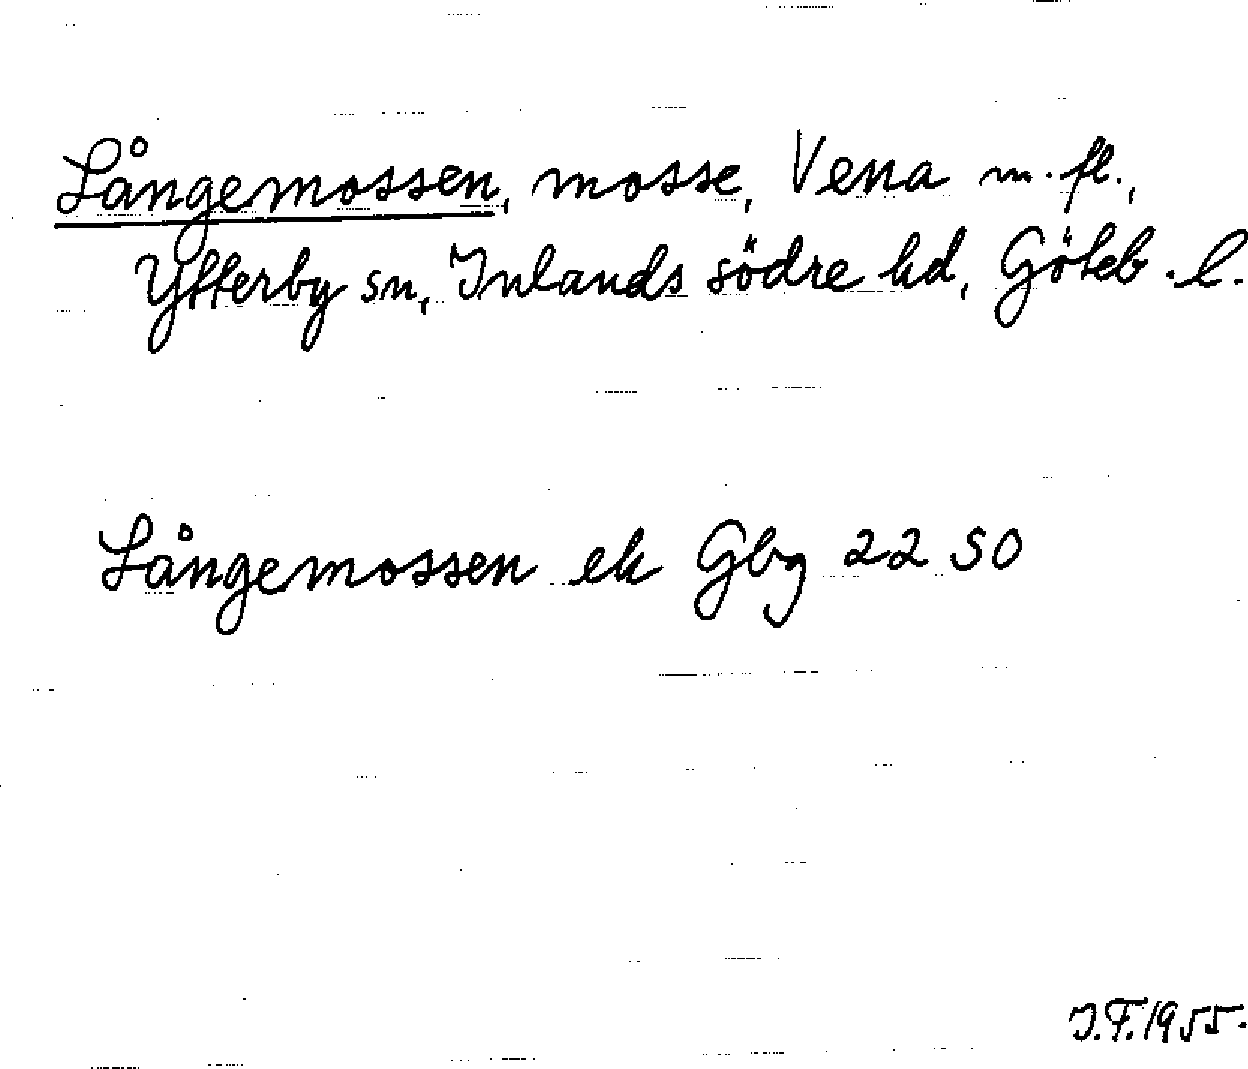 Långemossen, mosse, Vena m.fl.,
Ytterby sn, Inlands södre hd, Göteb.l.
Långemossen ek Gbg 22 50
J.F.1955.